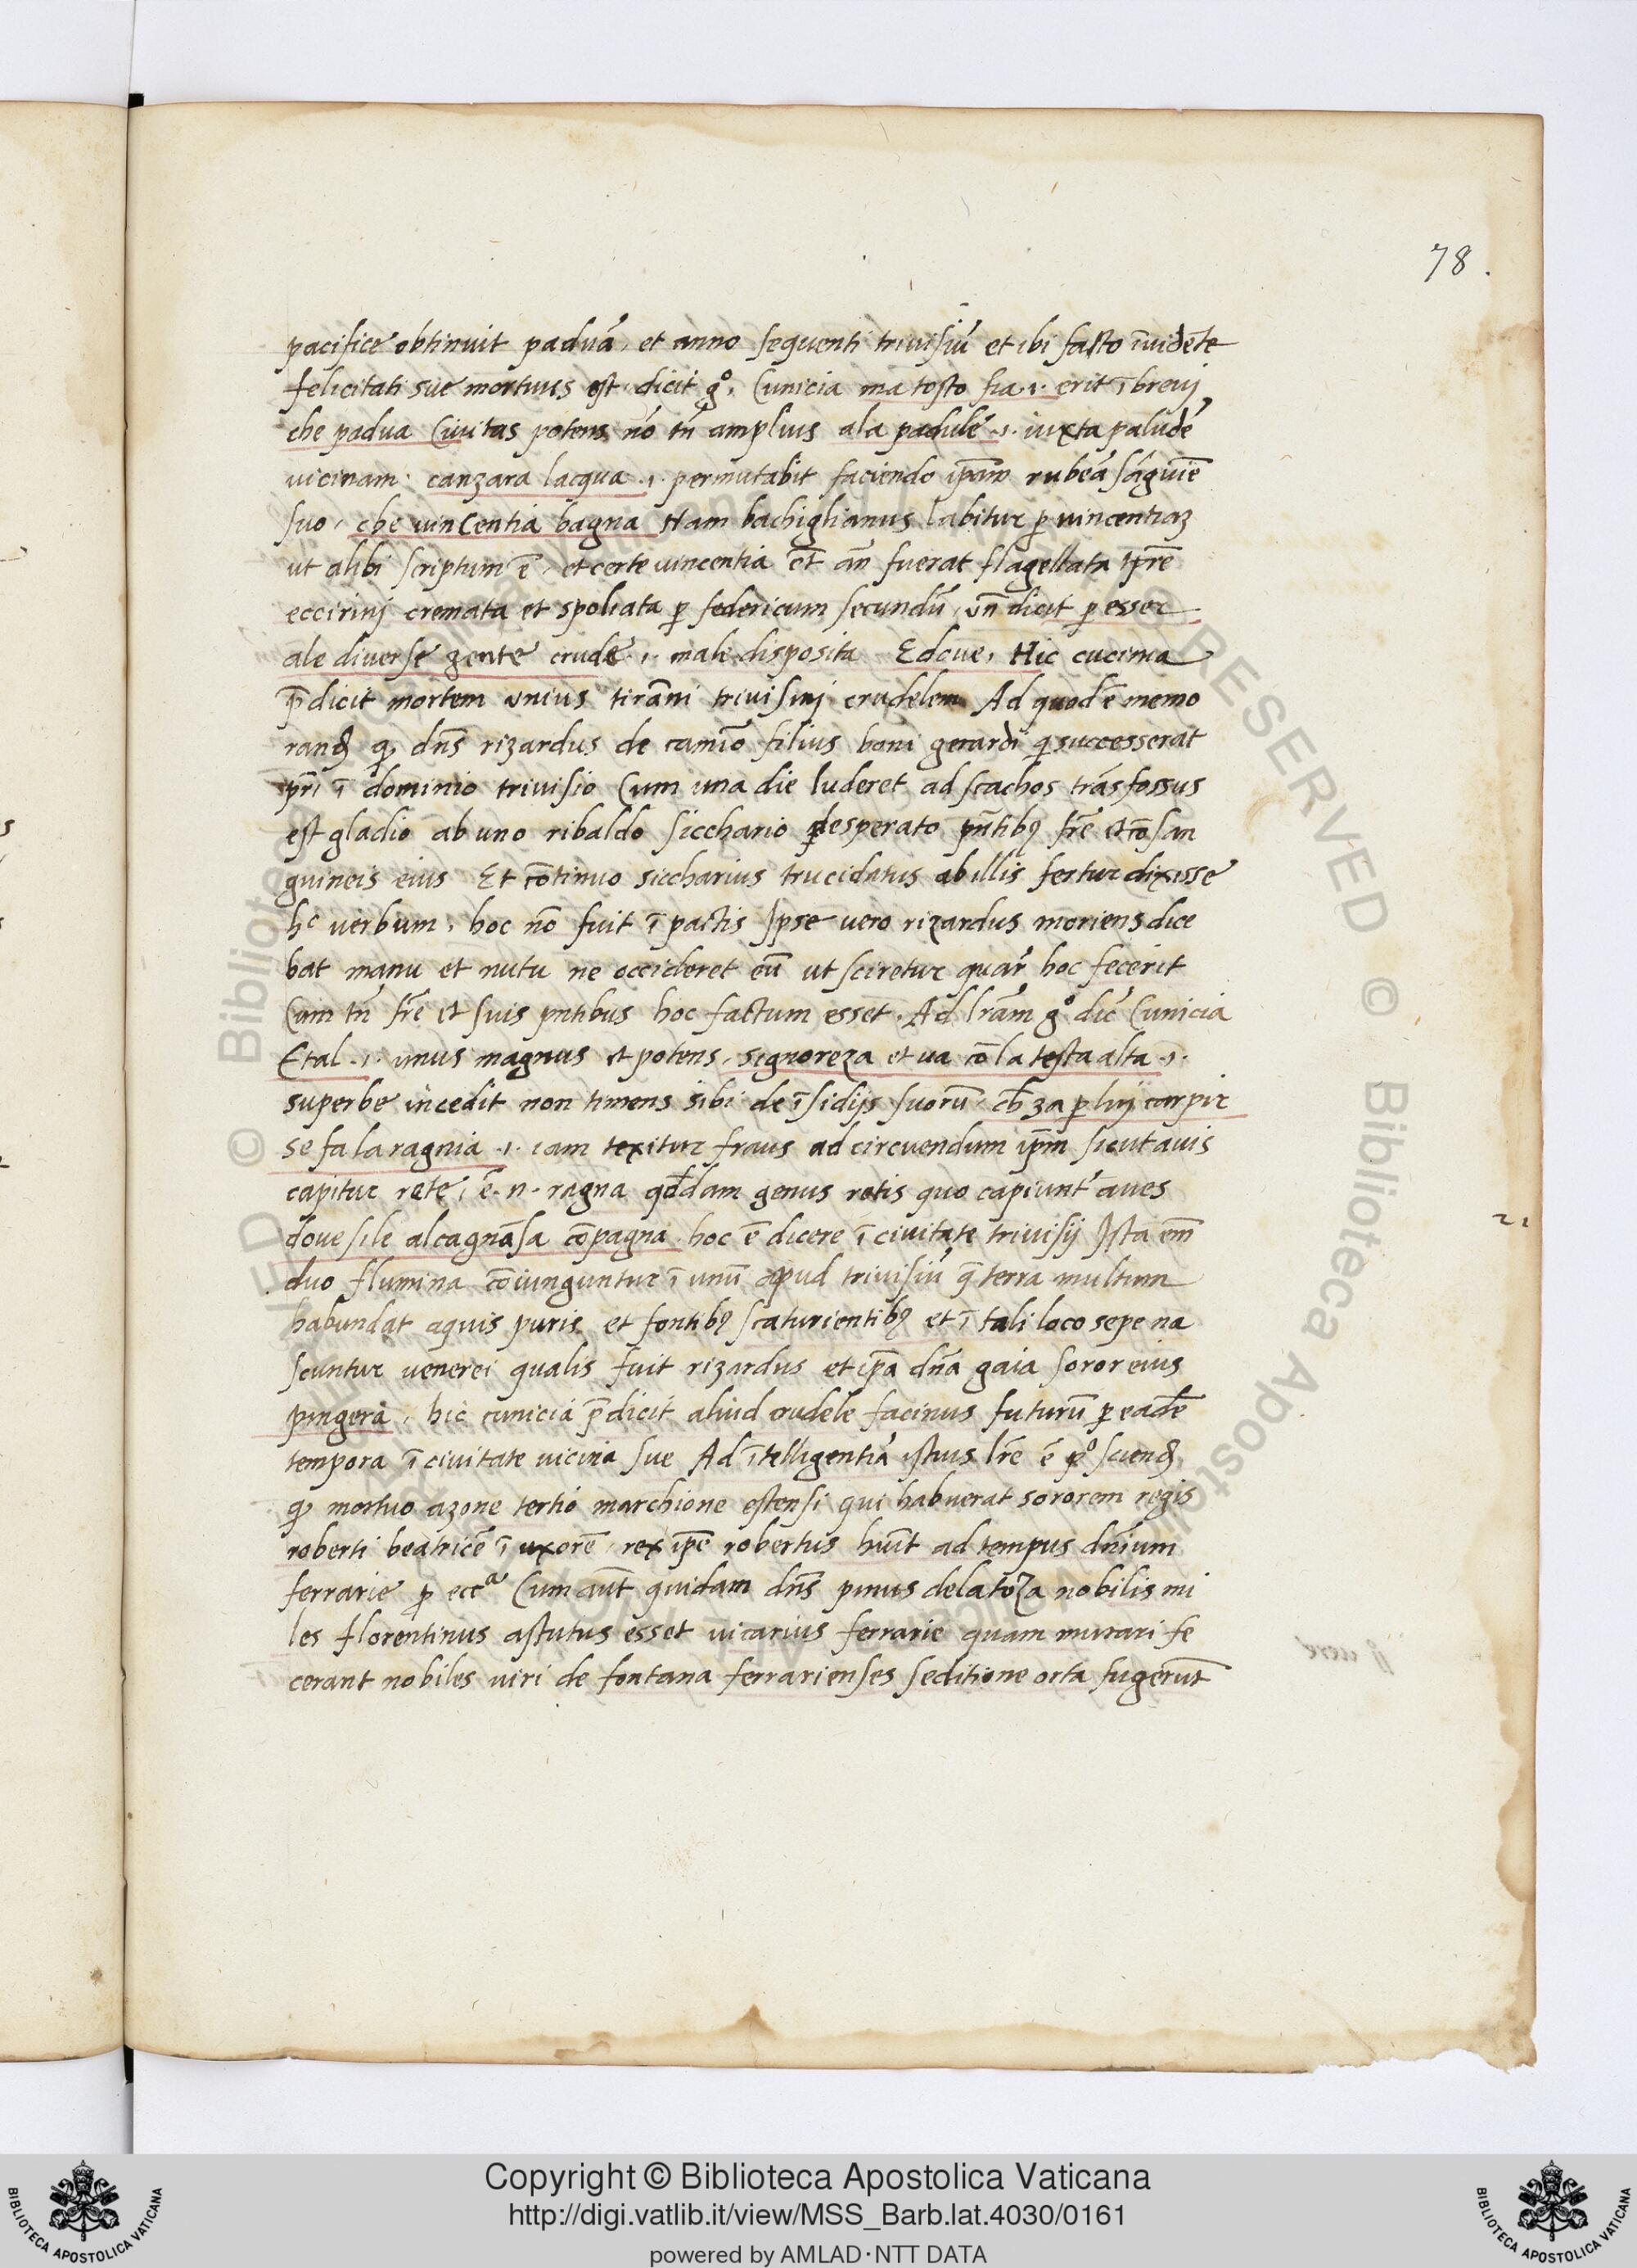 78.
pacifice obtinuit paduā, et anno sequenti trivisiū et ibi facto īvidēte
felicitati sue mortuus est. dicit gº, Cunicia ma tosto fia .i. erit ī brevi
che padua Civitas potens nō tn̄ amplius ala padule .i. iuxta paludē
vicinam. canzara lacqua .i. permutabit faciendo ip̄am rubeā sāguīe
suo, che vincentia bagna Nam bachiglianus labitur p̱ vincentiaʒ
ut alibi scriptum ē, et certe vincentia et̄ an̄ fuerat flagellata tp̄re
eccirinj cremata et spoliata p̱ federicum secundū, vn̄ dicit p̱ esser
ale diverse zente crude .i. male disposita Edove, Hic cucima
p̄dicit mortem unius tiranni trivisinj crudelem Ad quod ē memo
ranꝺ ꝙ dn̄s rizardus de camīo filius boni gerardi q̇ successerat
pr̄i ī dominio trivisio Cum una die luderet ad scachos trāsfossus
est gladio ab uno ribaldo sicchario desperato pn̄tibꝰ fr̄e et cōsan
guineis eius Et cōtinuo siccharius trucidatus ab illis fertur dixisse
hᶜ verbum, hoc nō fuit ī pactis Ipse vero rizardus moriens dice
bat manu et nutu ne occideret eū ut sciretur quar̄ hoc fecerit
Cum tn̄ fr̄e et suis pn̄tibus hoc factum esset. Ad lr̄am gº dic̄ Cunicia
Etal .i. unus magnus et potens, signoreza et va cō la testa alta .i.
superbe incedit non timens sibi de īsidijs suorū, ch̄ za p̱ luij carpir
se fa la ragnia .i. iam texitur fraus ad circuendum ip̄m sicut avis
capitur rete, ē .n. ragna qd̄dam genus retis quo capiunt̄ aves
dove sile alcagnāsa cōpagna. hoc ē dicere ī civitate trivisij Ista em̄
duo flumina cōiunguntur ī unū apud trivisiū q̄ terra multum
habundat aquis puris et fontibꝰ scaturientibꝰ et ī tali loco sepe na
scuntur venerei qualis fuit rizardus et ip̄a dn̄a gaia soror eius
pingera, hic cunicia p̄dicit aliud crudele facinus futurū p̱ eadē
tempora ī civitate vicina sue Ad ītelligentiā istius lr̄e ē pº scienꝺ
ꝙ mortuo azone tertio marchione estensi qui habuerat sororem regis
roberti beatricē ī uxorē, rex ip̄e robertus huīt ad tempus dn̄ium
ferrarie p̱ eccᵃ Cum aūt quidam dn̄s pinus dela toza nobilis mi
les florentinus astutus esset vicarius ferrarie quam murari fe
cerant nobiles viri de fontana ferrarienses seditione orta fugerūt
Copyright © Biblioteca Apostolica Vaticana
http://digi.vatlib.it/view/MSS_Barb.lat.4030/0161
powered by AMLAD·NTT DATA
BIBLIOTECA APOSTOLICA VATICANA
BIBLIOTECA APOSTOLICA VATICANA